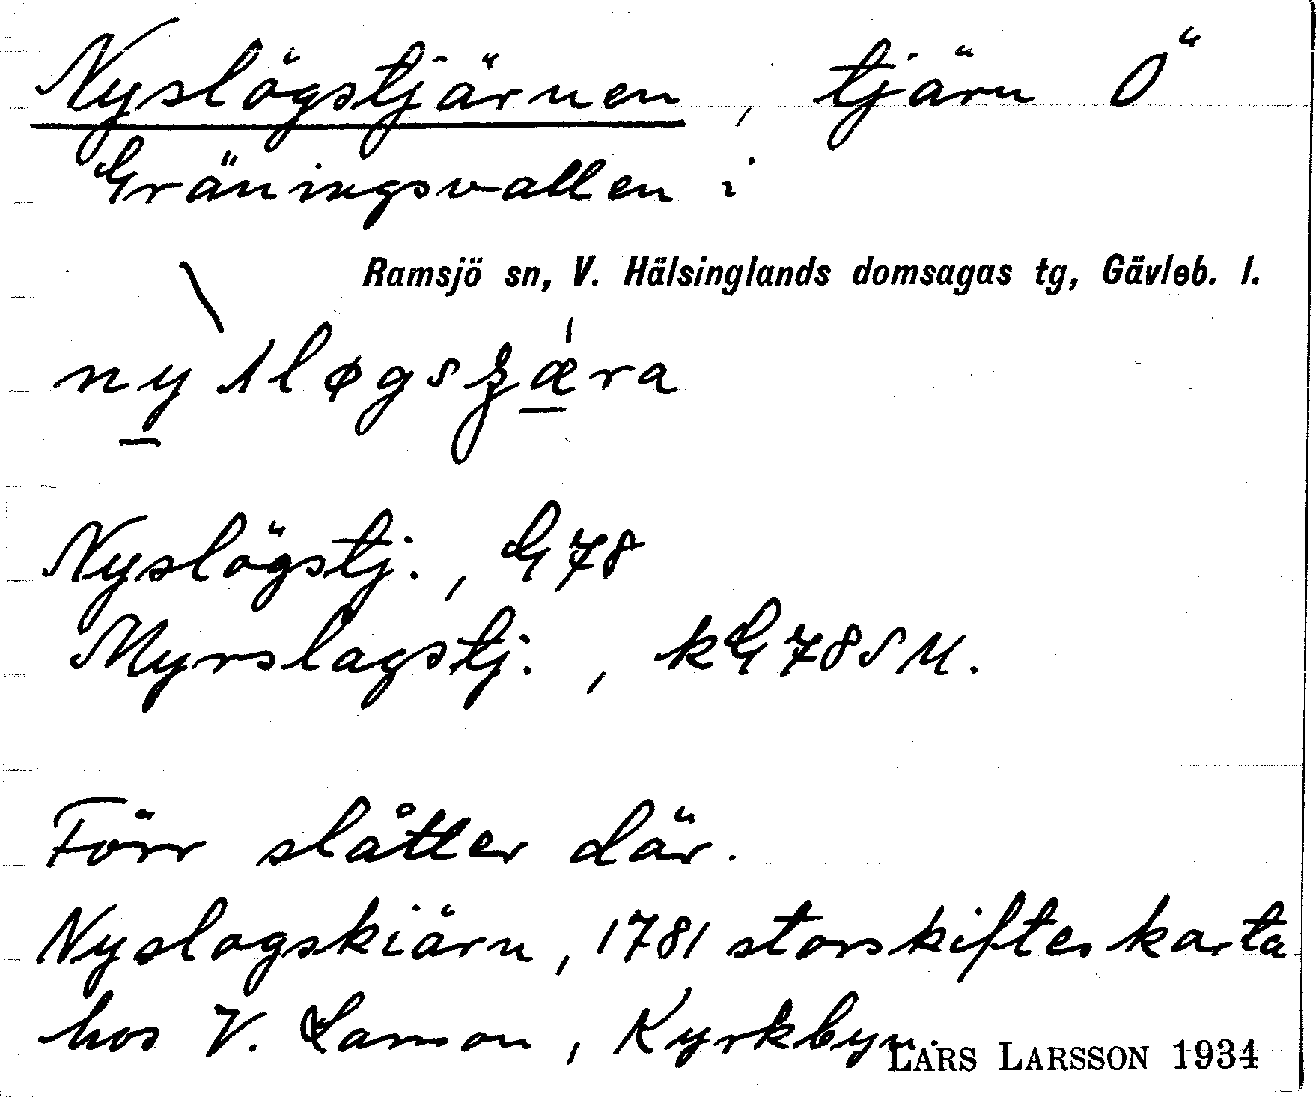 Nyslögstjärnen, tjärn Ö
Gräningsvallen i
Ramsjö sn, V. Hälsinglands domsagas tg, Gävleb. l.
Nyslögstj., G78
Myrslagstj., kG78SM.
Förr slåtter där.
Nyslogskiärn, 1781 storskifteskarta
hos V. Larson, Kyrkbyn.
LARS LARSSON 1934